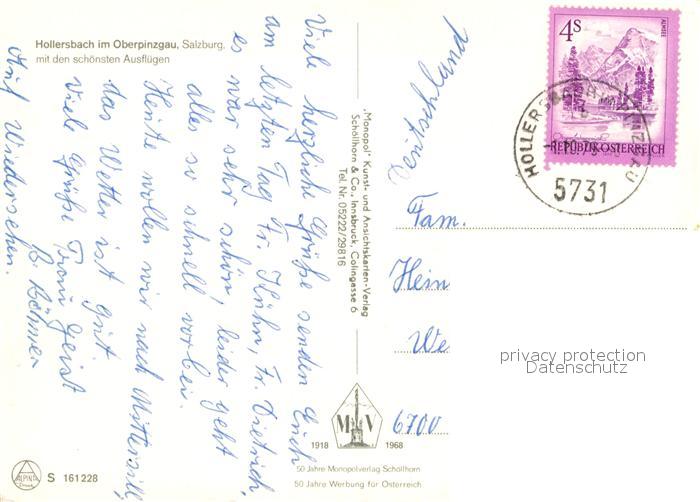 Hollersbach im Oberpinzgau, Salzburg,
mit den schönsten Ausflügen
Viele herzliche Grüße senden Euch
am letzten Tag Fr. Kühn, Fr. Dietrich,
es war sehr schön, leider geht
alles so schnell vorbei.
Heute wollen wir nach Mittersill,
das Wetter ist gut.
Viele Grüße Frau Geist
Auf Wiedersehen.
"Monopol" Kunst- und Ansichtskarten-Verlag
Schöllhorn & Co., Innsbruck, Colingasse 6
Tel. Nr. 05222/29816
Deutschland
Fam.
Hein
We
6700
4S
ALMSEE
REPUBLIK ÖSTERREICH
5731
privacy protection
Datenschutz
M V
1918 1968
50 Jahre Monopolverlag Schöllhorn
50 Jahre Werbung für Österreich
ALPINA
Druck
S 161228